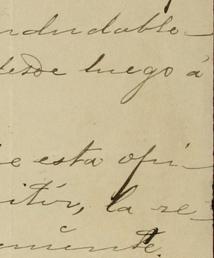 ndudable-
desde luego á
e esta ofi-
itir, la re-
emente.